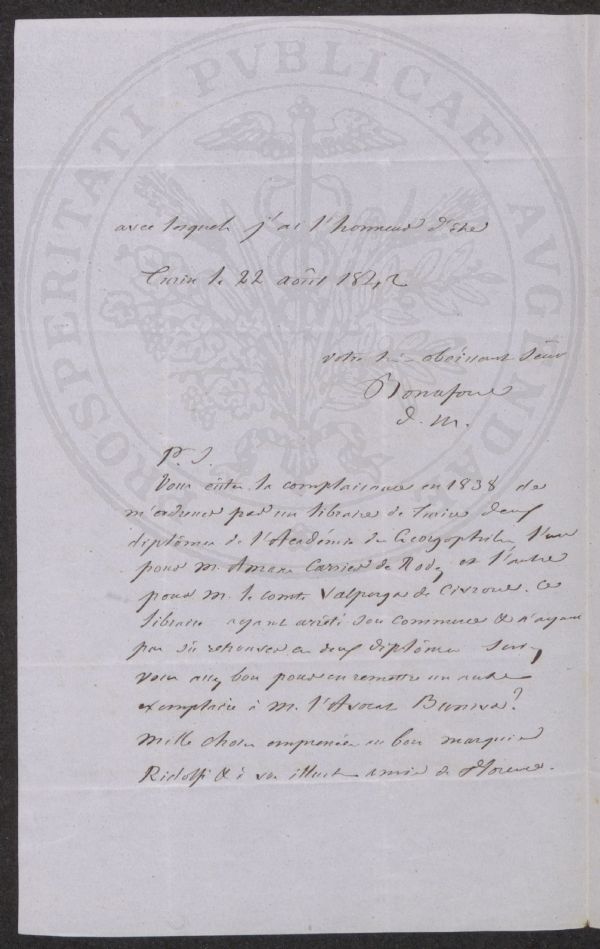 PROSPERITATI PVBLICAE AVGENDAE
avec lesquels j'ai l'honneur d'être
Turin le 22 août 1842
votre très obéissant Serv
Bonafous
d. m.
P. S.
Vous eutes la complaisance en 1838 de
m'adresser par un libraire de Turin deux
diplômes de l'Académie des Georgophiles l'un
pour M. Carrier de Rodez et l'autre
pour M. le comte Valperga de Civrone. Ce
libraire ayant arrêté son commerce & n'ayant
pas sû retrouver ces deux diplômes Serez
vous assez bon pour en remettre un autre
exemplaire à M. l'Avocat Buniva?
Mille choses empressées au bon marquis
Ridolfi & à vos illustres amis de Florence.